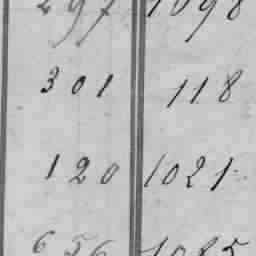 297 1098
301 118
120 1021
656 1085